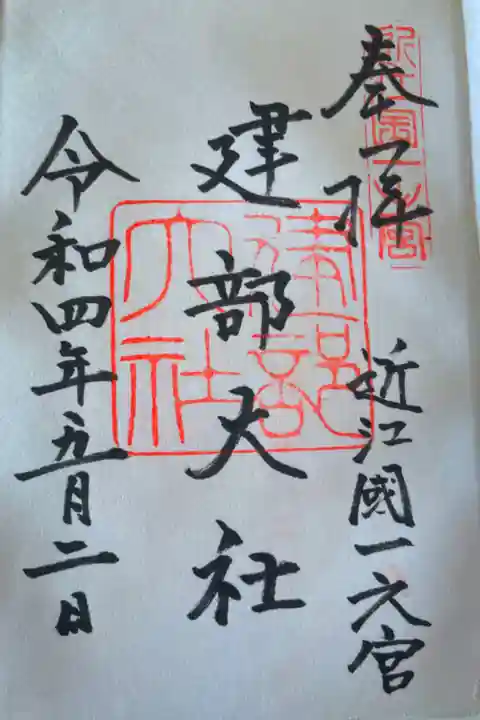 奉拝
近江國一之宮
建部大社
令和四年五月二日
近江國一之宮
建部
大社